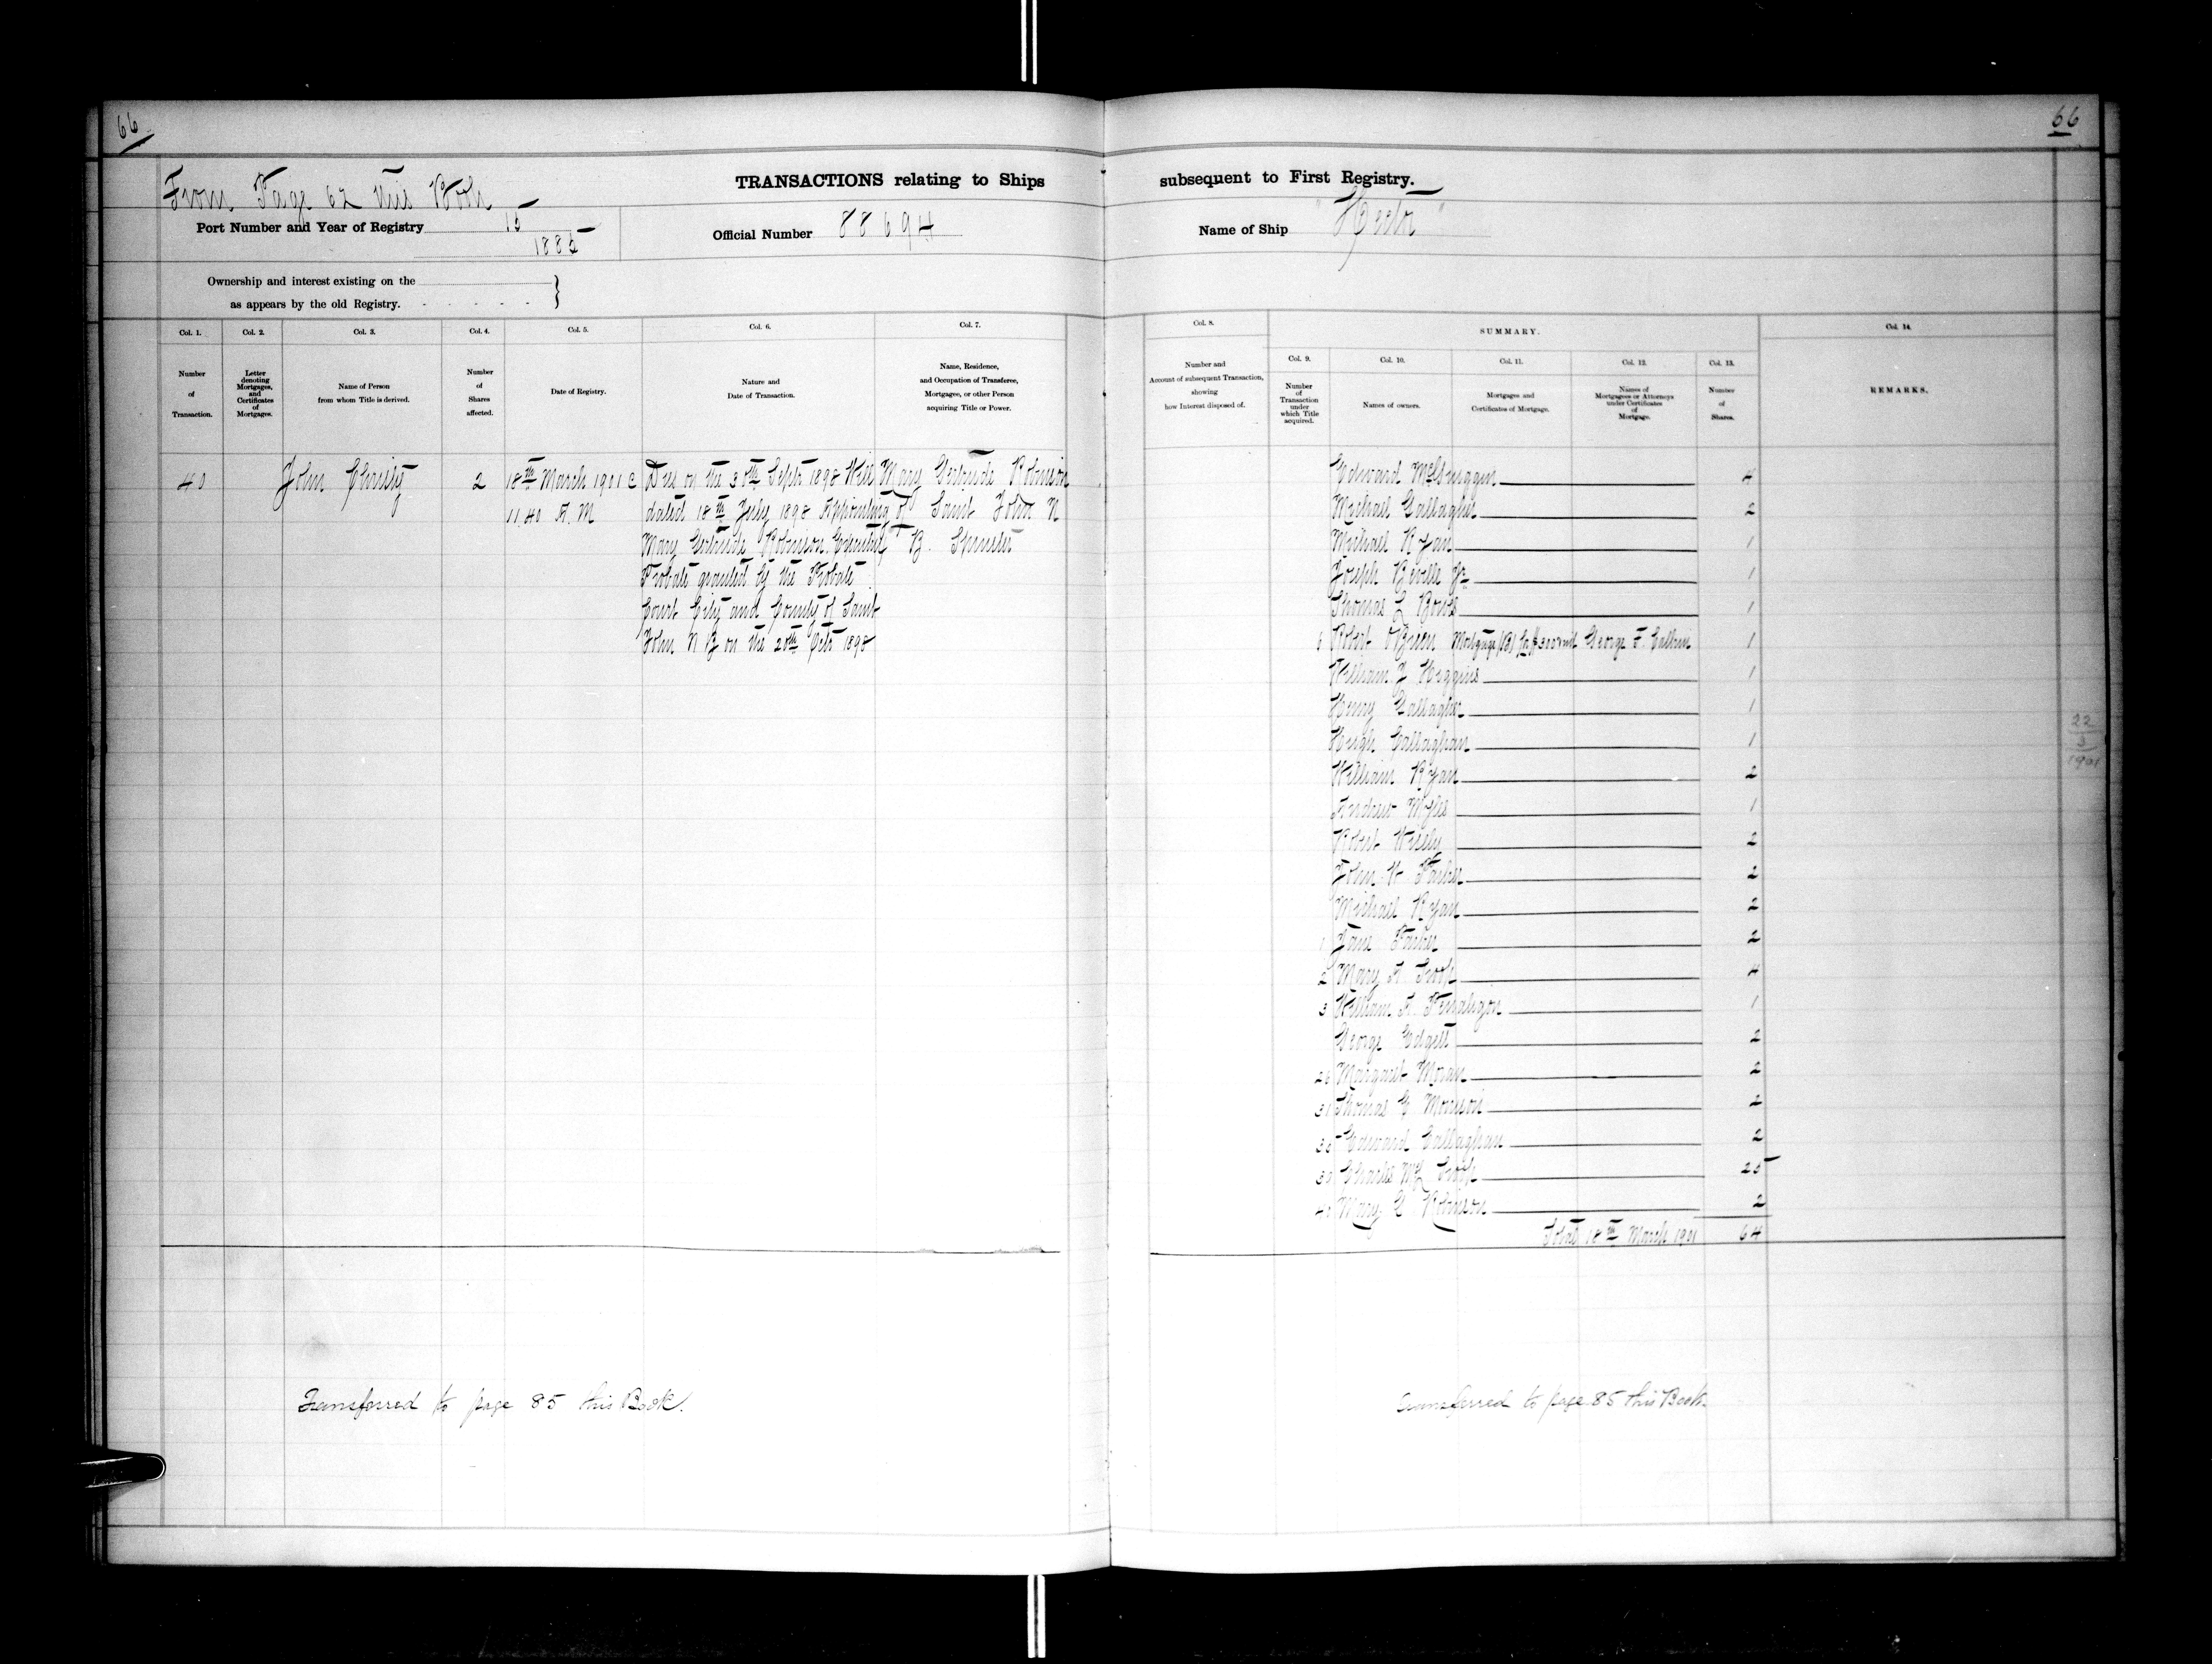 66
66
From Page 62 this Book
TRANSACTIONS relating to Ships subsequent to First Registry.
Port Number and Year of Registry 15
1885
Official Number 88694
Name of Ship "Hector"
Ownership and interest existing on the
as appears by the old Registry.
Col. 1.
Number
of
Transaction.
Col. 2.
Letter
denoting
Mortgages,
and
Certificates
of
Mortgages.
Col. 3.
Name of Person
from whom Title is derived.
Col. 4.
Number
of
Shares
affected.
Col. 5.
Date of Registry.
Col. 6.
Nature and
Date of Transaction.
Col. 7.
Name, Residence,
and Occupation of Transferee,
Mortgagee, or other Person
acquiring Title or Power.
Col. 8.
Number and
Account of subsequent Transaction,
showing
how Interest disposed of.
SUMMARY.
Col. 9.
Number
of
Transaction
under
which Title
acquired.
Col. 10.
Names of owners.
Col. 11.
Mortgages and
Certificates of Mortgage.
Col. 12.
Names of
Mortgagees or Attorneys
under Certificates
of
Mortgage.
Col. 13.
Number
of
Shares.
Col. 14.
REMARKS.
40
John Christy
2
18th March 1901 @
11.40 A.M
Dies on the 30th Sept 1898 Will
dated 18th July 1898 Appointing
Mary Gertrude Robinson Executrix
Probate granted by the Probate
Court City and County of Saint
John N B on the 20th Octo 1898
Mary Gertrude Robinson
of Saint John N
B. Spinster
Edward McGuiggin 4
Michael Gallagher 2
Michael Ryan 1
Joseph Jr 1
Thomas 1
6 Robert OBrien Mortgage (B) George F. 1
William J Higgins 1
Henry Gallagher 1
Hugh Callaghan 1
William Ryan 2
Andrew Myles 1
Robert Wisely 2
John W Parker 2
Michael Ryan 2
1 Jane Parker 2
2 Mary A Troop 4
3 William A 1
George Edgett 2
26 Margaret Moran 2
31 Thomas E Morrison 2
35 Edward Callaghan 2
Charles Troop 25
40 Mary G Robinson 2
Total 18th March 1901 64
22
3
1901
Transferred to page 85 this Book.
Transferred to page 85 this Book.